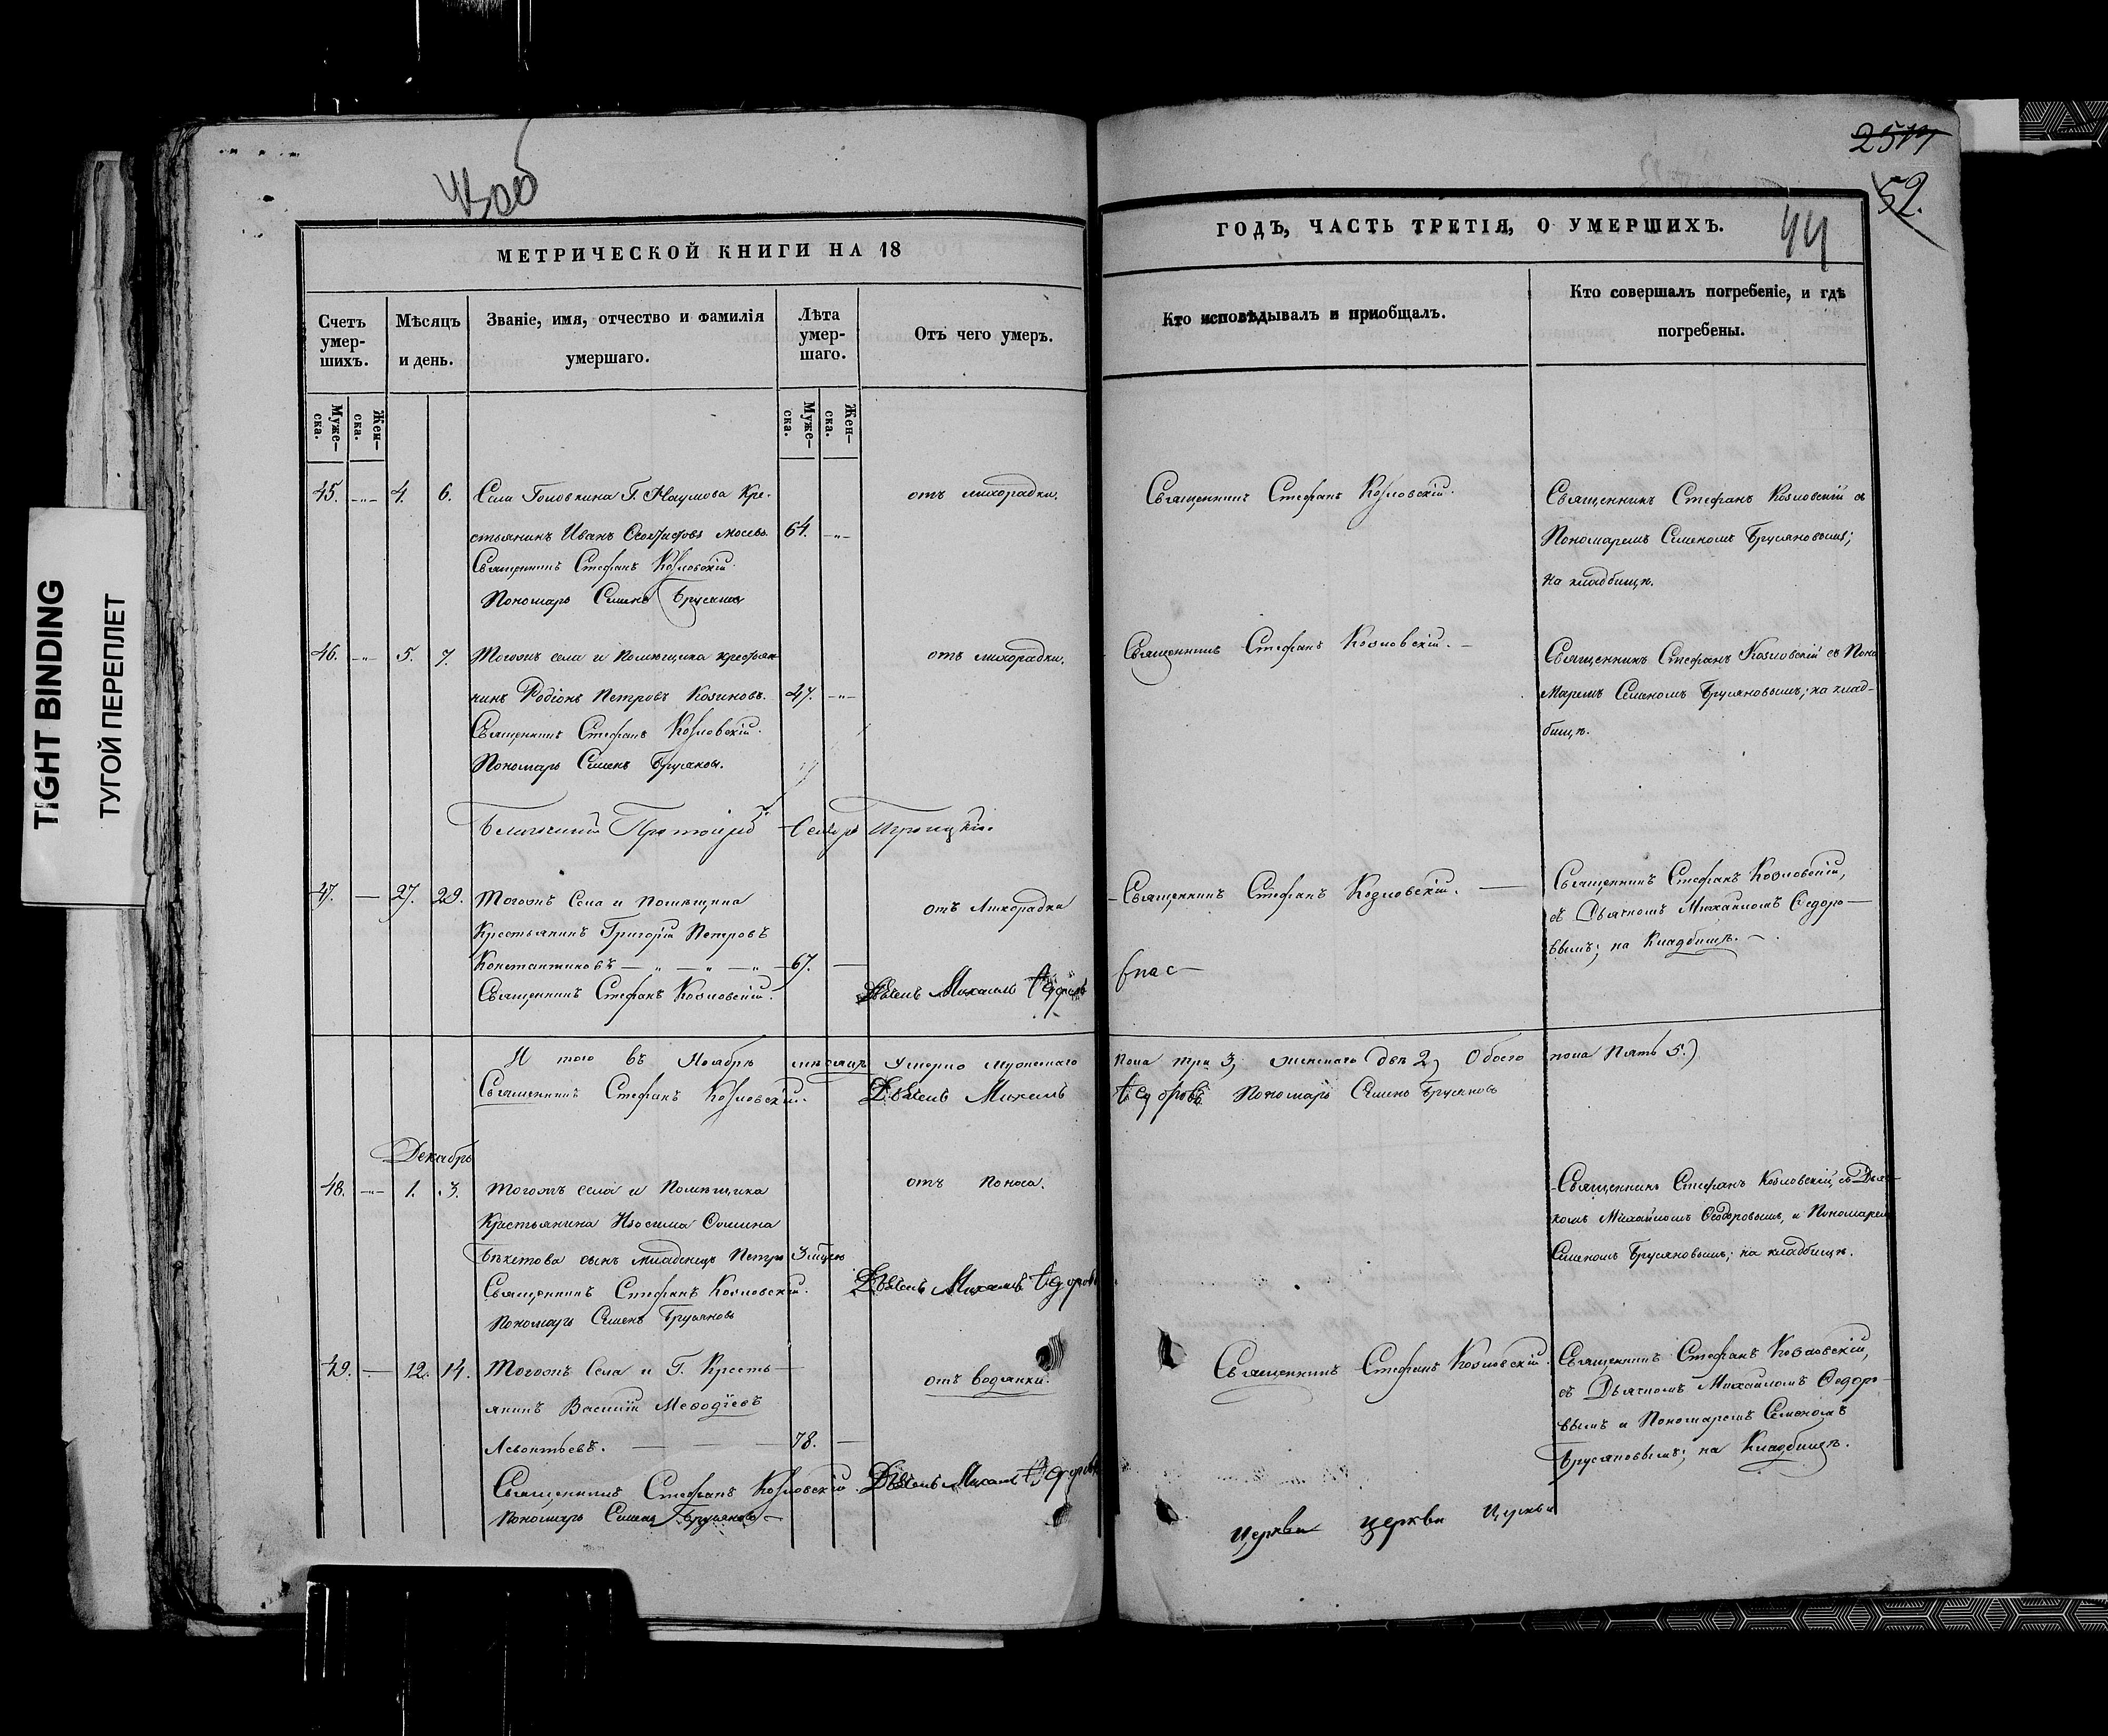 2517
52.
44
МЕТРИЧЕСКОЙ КНИГИ НА 18
ГОДЪ, ЧАСТЬ ТРЕТІЯ, О УМЕРШИХЪ.
Счетъ умер-шихъ.
Мѣсяцъ и день.
Званіе, имя, отчество и фамилія умершаго.
Лѣта умер-шаго.
Отъ чего умеръ.
Кто исповѣдывалъ и приобщалъ.
Кто совершалъ погребеніе, и гдѣ погребены.
Муже-ска.
Жен-ска.
Муже-ска.
Жен-ска.
45. -"- 4. 6. Села Головкина Г. Наумова Кре-
стьянинъ Иванъ 64. -"-
Священникъ Стефанъ Козловскій.
Пономарь Семенъ Брусянов
отъ лихорадки.
Священникъ Стефанъ Козловскій.
Священникъ Стефанъ Козловскій съ
Пономаремъ Семеномъ Брусяновымъ;
на кладбищѣ.
46. -"- 5. 7. Тогожъ села и Помѣщика крестьян-
нинъ Родіонъ Петровъ Козиновъ. 47. -"-
Священникъ Стефанъ Козловскій.
Пономарь Семенъ Брусянов.
отъ лихорадки.
Священникъ Стефанъ Козловскій.
Священникъ Стефанъ Козловскій съ Поно
маремъ Семеномъ Брусяновымъ; на клад-
бищѣ.
47. — 27. 29. Тогожъ Села и Помѣщика
Крестьянинъ Григорій Петровъ
Константиновъ — " — " — " — 67. —
Священникъ Стефанъ Козловскій.
отъ Лихорадки
Дьячекъ Михаилъ Федоровъ
Священникъ Стефанъ Козловскій. —
Священникъ Стефанъ Козловскій,
съ Дьячкомъ Михаиломъ Ѳедоро-
вымъ; на Кладбищѣ.
И того въ Ноябрѣ мѣсяцѣ Умерло мужескаго пола три 3, женскаго двѣ 2, Обоего пола Пять 5.)
Священникъ Стефанъ Козловскій. Дьячекъ Михаилъ Федоровъ Пономарь Семенъ Брусяновъ
Декабрь
48. -"- 1. 3. Тогожъ села и Помѣщика
Крестьянина Изосима Ѳомина
Бѣкетова сынъ младенецъ Петръ 3 мѣсяц
Священникъ Стефанъ Козловскій.
Пономарь Семенъ Брусяновъ
отъ поноса.
Дьячекъ Михаилъ Федоровъ
Священникъ Стефанъ Козловскій, съ Дьяч-
комъ Михайломъ Ѳеодоровымъ, и Пономаремъ
Семеномъ Брусяновымъ; на кладбищѣ.
49. — 12. 14. Тогожъ Села и Г. Кресть-
янинъ Василій Меѳодіевъ
Леонтьевъ. — 78. —
Священникъ Стефанъ Козловскій.
Пономарь Семенъ Брусяновъ
отъ водянки.
Дьячекъ Михаилъ Федоровъ
Священникъ Стефанъ Козловскій.
Священникъ Стефанъ Козловскій,
съ Дьячкомъ Михаиломъ Ѳедоро-
вымъ и Пономаремъ Семеномъ
Брусяновымъ; на Кладбищѣ.
Церкви церкви Церкви
TIGHT BINDING
ТУГОЙ ПЕРЕПЛЕТ